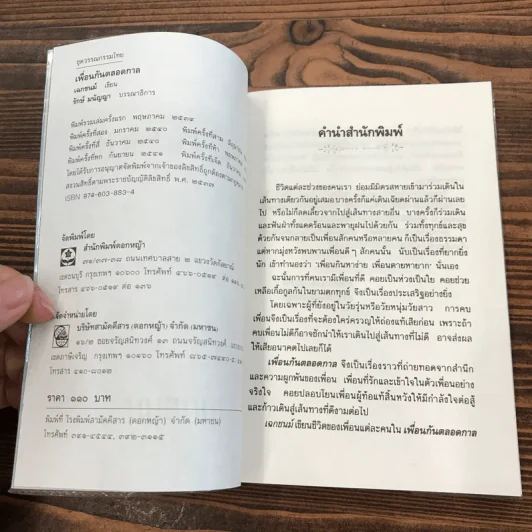 ชุดวรรณกรรมไทย
เพื่อนกันตลอดกาล
เฉกชนม์ เขียน
รักษ์ มนัญญา บรรณาธิการ
พิมพ์รวมเล่มครั้งแรก พฤษภาคม ๒๕๓๙
พิมพ์ครั้งที่สอง มกราคม ๒๕๔๐ พิมพ์ครั้งที่สาม
พิมพ์ครั้งที่สี่ ธันวาคม ๒๕๔๐ พิมพ์ครั้งที่ห้า
พิมพ์ครั้งที่หก กันยายน ๒๕๔๑ พิมพ์ครั้งที่เจ็ด ธันวาคม
โดยได้รับการอนุญาตจัดพิมพ์จากเจ้าของลิขสิทธิ์ถูกต้องตามกฎหมาย
สงวนสิทธิ์ตามพระราชบัญญัติลิขสิทธิ์ พ.ศ. ๒๕๓๗
ISBN 974-603-883-4
จัดพิมพ์โดย
สำนักพิมพ์ดอกหญ้า
๓๑/๓๗-๓๘ ถนนเทศบาลสาย ๒ แขวงวัดกัลยาณ์
เขตธนบุรี กรุงเทพฯ ๑๐๖๐๐ โทรศัพท์ ๔๖๖-๐๕๑๙
โทรสาร ๔๖๖-๐๕๑๙ ต่อ ๑๓๖
จัดจำหน่ายโดย
บริษัทสามัคคีสาร (ดอกหญ้า) จำกัด (มหาชน)
๑๖/๒ ซอยจรัญสนิทวงศ์ ๑๓ ถนนจรัญสนิทวงศ์
เขตภาษีเจริญ กรุงเทพฯ ๑๐๑๖๐
โทรสาร ๔๑๐-๘๐๑๒
ราคา ๑๑๐ บาท
พิมพ์ที่ โรงพิมพ์สามัคคีสาร (ดอกหญ้า) จำกัด (มหาชน)
โทรศัพท์ ๓๙๑-๔๕๕๔, ๓๙๒-๓๑๑๕
คำนำสำนักพิมพ์
ชีวิตแต่ละช่วงของคนเรา ย่อมมีมิตรสหายเข้ามาร่วมเดินใน
เส้นทางเดียวกันอยู่เสมอ บางครั้งก็แค่เดินเฉียดผ่านแล้วก็ผ่านเลย
ไป หรือไม่ก็ลดเลี้ยวจากไปสู่เส้นทางสายอื่น บางครั้งก็ร่วมเดิน
และฟันฝ่าทั้งแดดร้อนและพายุฝนไปด้วยกัน ร่วมทั้งทุกข์และสุข
ด้วยกันจนกลายเป็นเพื่อนสักคนหรือหลายคน ก็เป็นเรื่องธรรมดา
แต่หากมุ่งหวังพบพานเพื่อนดี ๆ สักคนนั้น นับเป็นเรื่องที่ยากยิ่ง
นัก เข้าทำนองว่า "เพื่อนกินหาง่าย เพื่อนตายหายาก" นั่นเอง
ฉะนั้นการที่คนเรามีเพื่อนที่ดี คอยเป็นห่วงเป็นใย คอยช่วย
เหลือเกื้อกูลกันในยามตกทุกข์ จึงเป็นเรื่องประเสริฐอย่างยิ่ง
โดยเฉพาะผู้ที่ยังอยู่ในวัยรุ่นหรือวัยหนุ่มวัยสาว การคบ
เพื่อนจึงเป็นเรื่องที่จะต้องใคร่ครวญให้ถ่องแท้เสียก่อน เพราะถ้า
คบเพื่อนไม่ดีก็อาจชักนำให้เราเดินไปสู่เส้นทางที่ไม่ดี อาจส่งผล
ให้เสียอนาคตไปเลยก็ได้
เพื่อนกันตลอดกาล จึงเป็นเรื่องราวที่ถ่ายทอดจากสำนึก
และความผูกพันของเพื่อน เพื่อนที่รักและเข้าใจในตัวเพื่อนอย่าง
จริงใจ คอยปลอบโยนเพื่อนผู้ท้อแท้สิ้นหวังให้มีกำลังใจต่อสู้
และก้าวเดินสู่เส้นทางที่ดีงามต่อไป
เฉกชนม์ เขียนชีวิตของเพื่อนแต่ละคนใน เพื่อนกันตลอดกาล